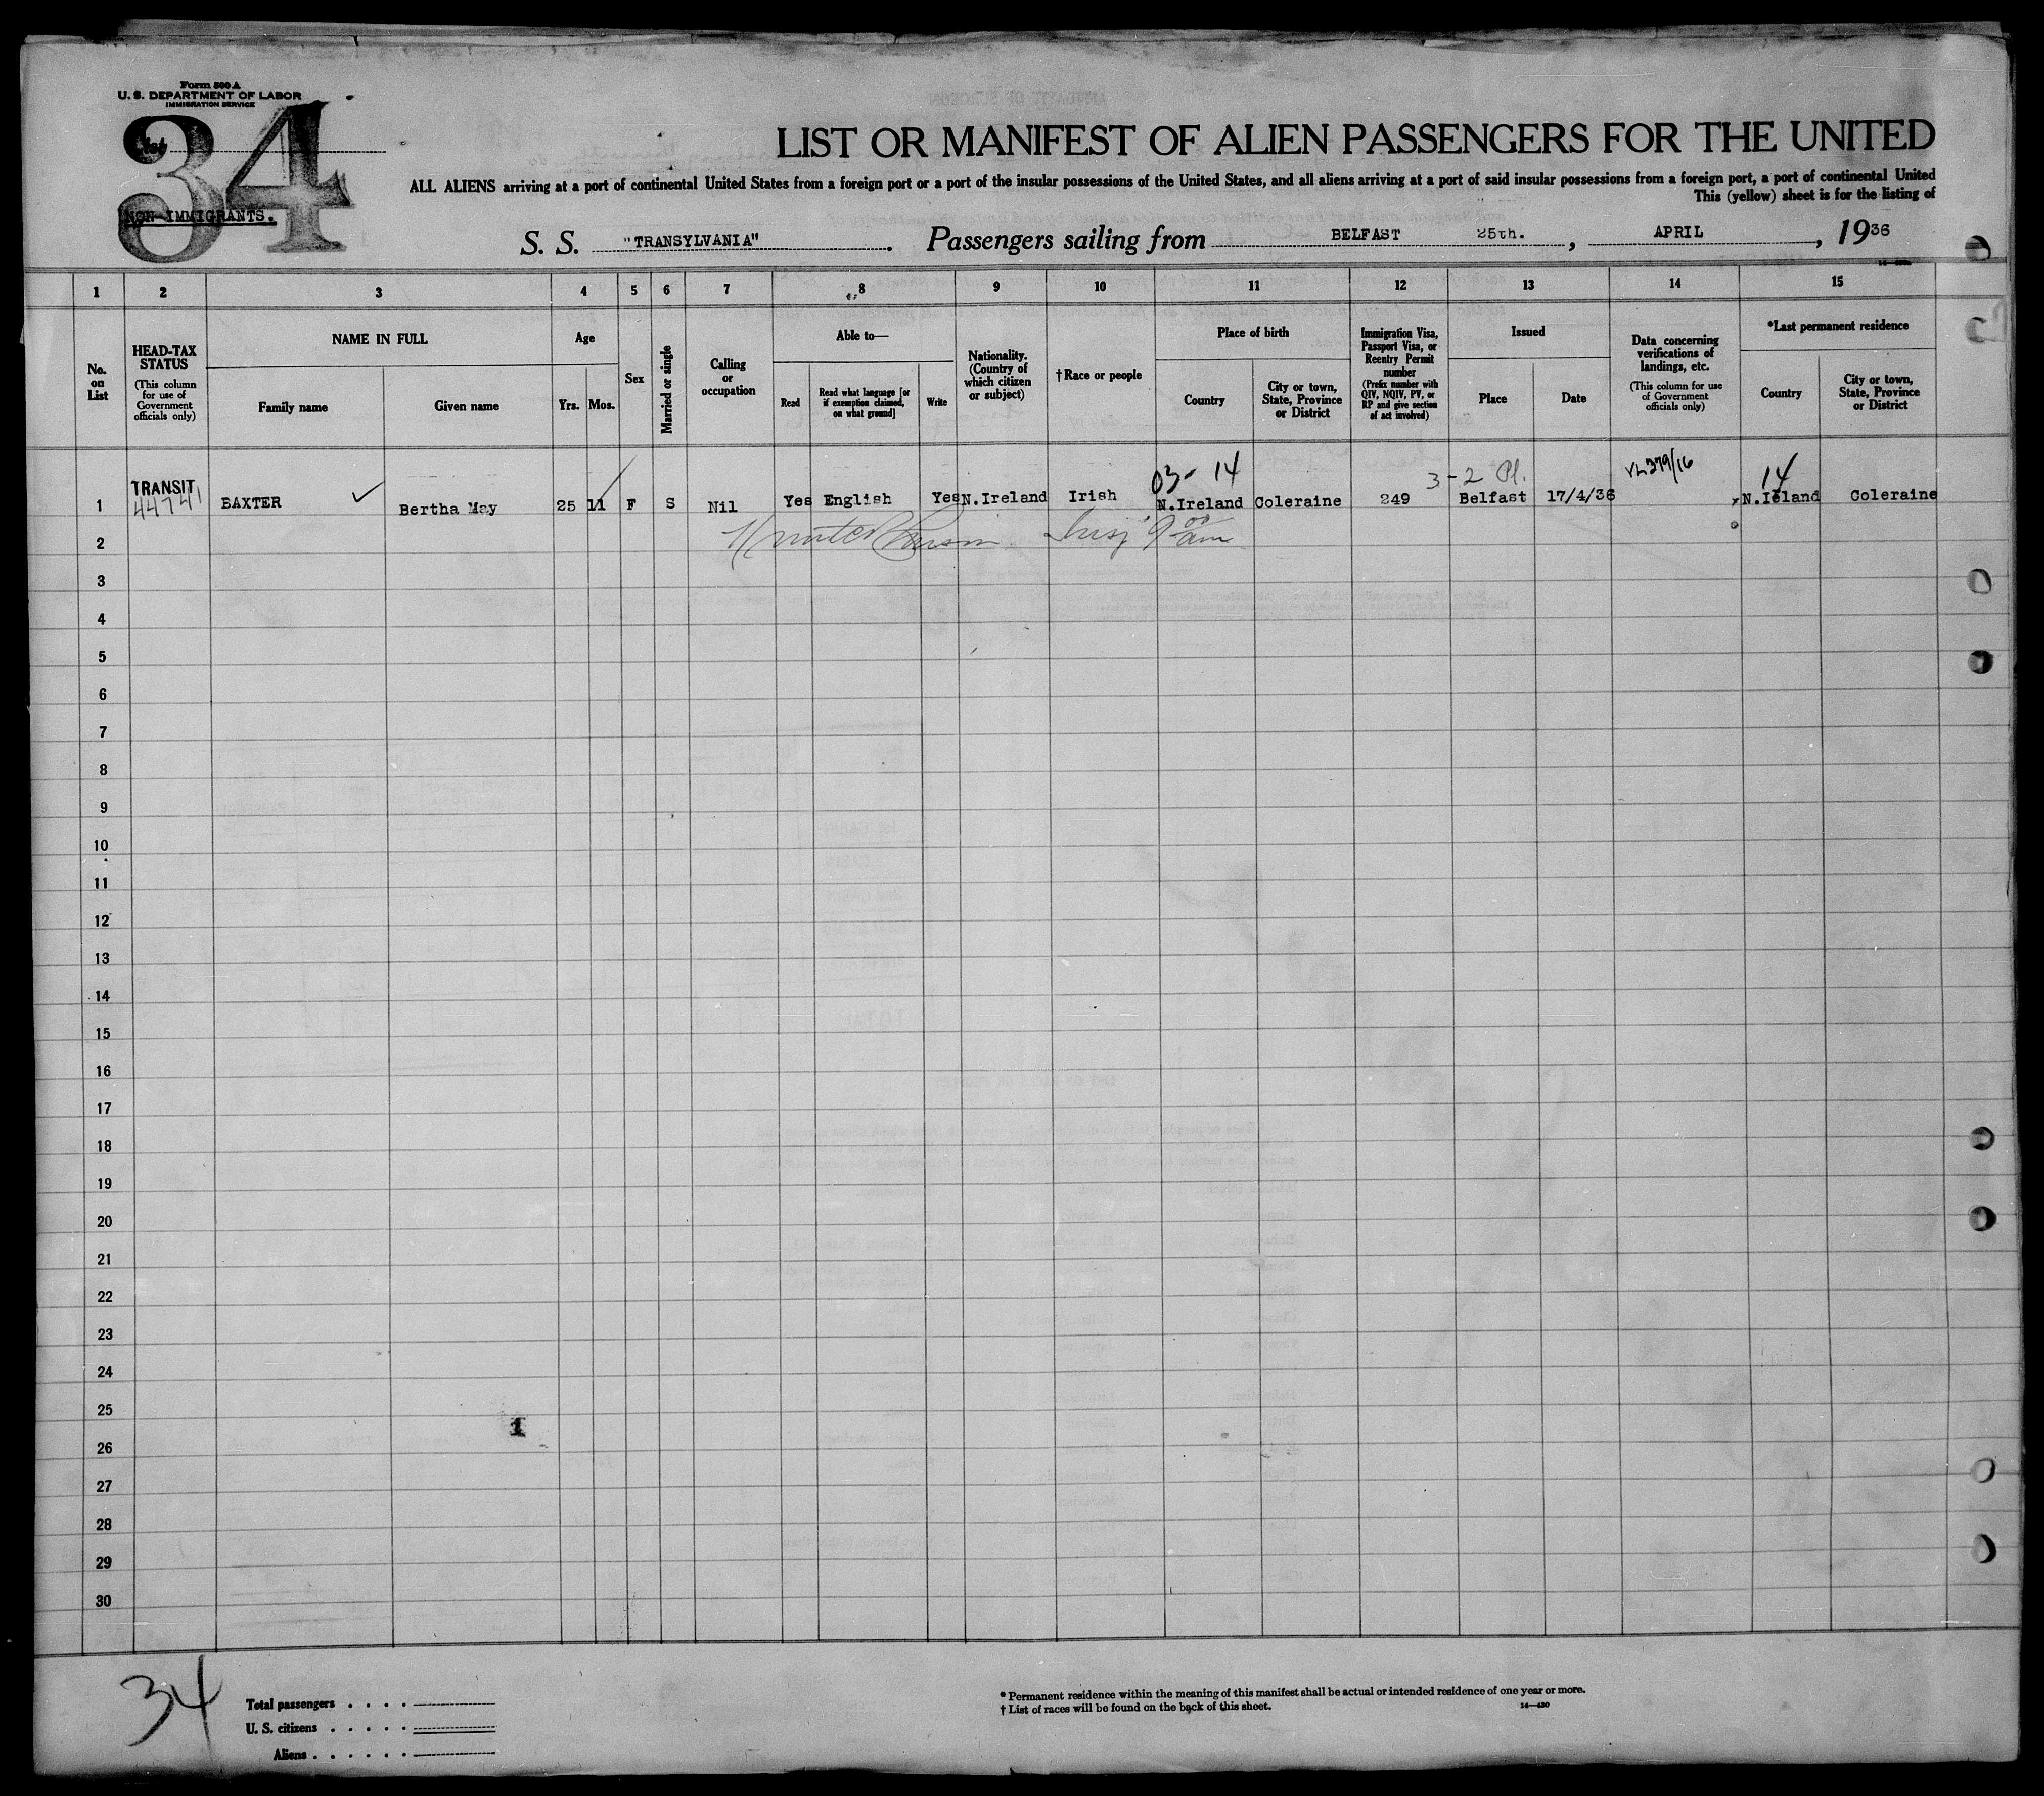 Form 500 A
U. S. DEPARTMENT OF LABOR
IMMIGRATION SERVICE
34
List
NON-IMMIGRANTS.
LIST OR MANIFEST OF ALIEN PASSENGERS FOR THE UNITED
ALL ALIENS arriving at a port of continental United States from a foreign port or a port of the insular possessions of the United States, and all aliens arriving at a port of said insular possessions from a foreign port, a port of continental United
This (yellow) sheet is for the listing of
S. S. "TRANSYLVANIA". Passengers sailing from BELFAST 25th., APRIL, 1936
1 2 3 4 5 6 7 8 9 10 11 12 13 14 15
No. on List
HEAD-TAX STATUS
(This column for use of Government officials only)
NAME IN FULL
Family name
Given name
Age
Yrs.
Mos.
Sex
Married or single
Calling or occupation
Able to—
Read
Read what language [or if exemption claimed, on what ground]
Write
Nationality. (Country of which citizen or subject)
†Race or people
Place of birth
Country
City or town, State, Province or District
Immigration Visa, Passport Visa, or Reentry Permit number
(Prefix number with QIV, NQIV, PV, or RP and give section of act involved)
Issued
Place
Date
Data concerning verifications of landings, etc.
(This column for use of Government officials only)
*Last permanent residence
Country
City or town, State, Province or District
03- 14 3-2 Pl. 14
1 TRANSIT 44741 BAXTER ✓ Bertha May 25 11 F S Nil Yes English Yes N.Ireland Irish N.Ireland Coleraine 249 Belfast 17/4/36 N.Ieland Coleraine
9 00 am
2
3
4
5
6
7
8
9
10
11
12
13
14
15
16
17
18
19
20
21
22
23
24
25
1
26
27
28
29
30
34
Total passengers . . . .
U. S. citizens . . . . .
Aliens . . . . . .
* Permanent residence within the meaning of this manifest shall be actual or intended residence of one year or more.
† List of races will be found on the back of this sheet.
14—430